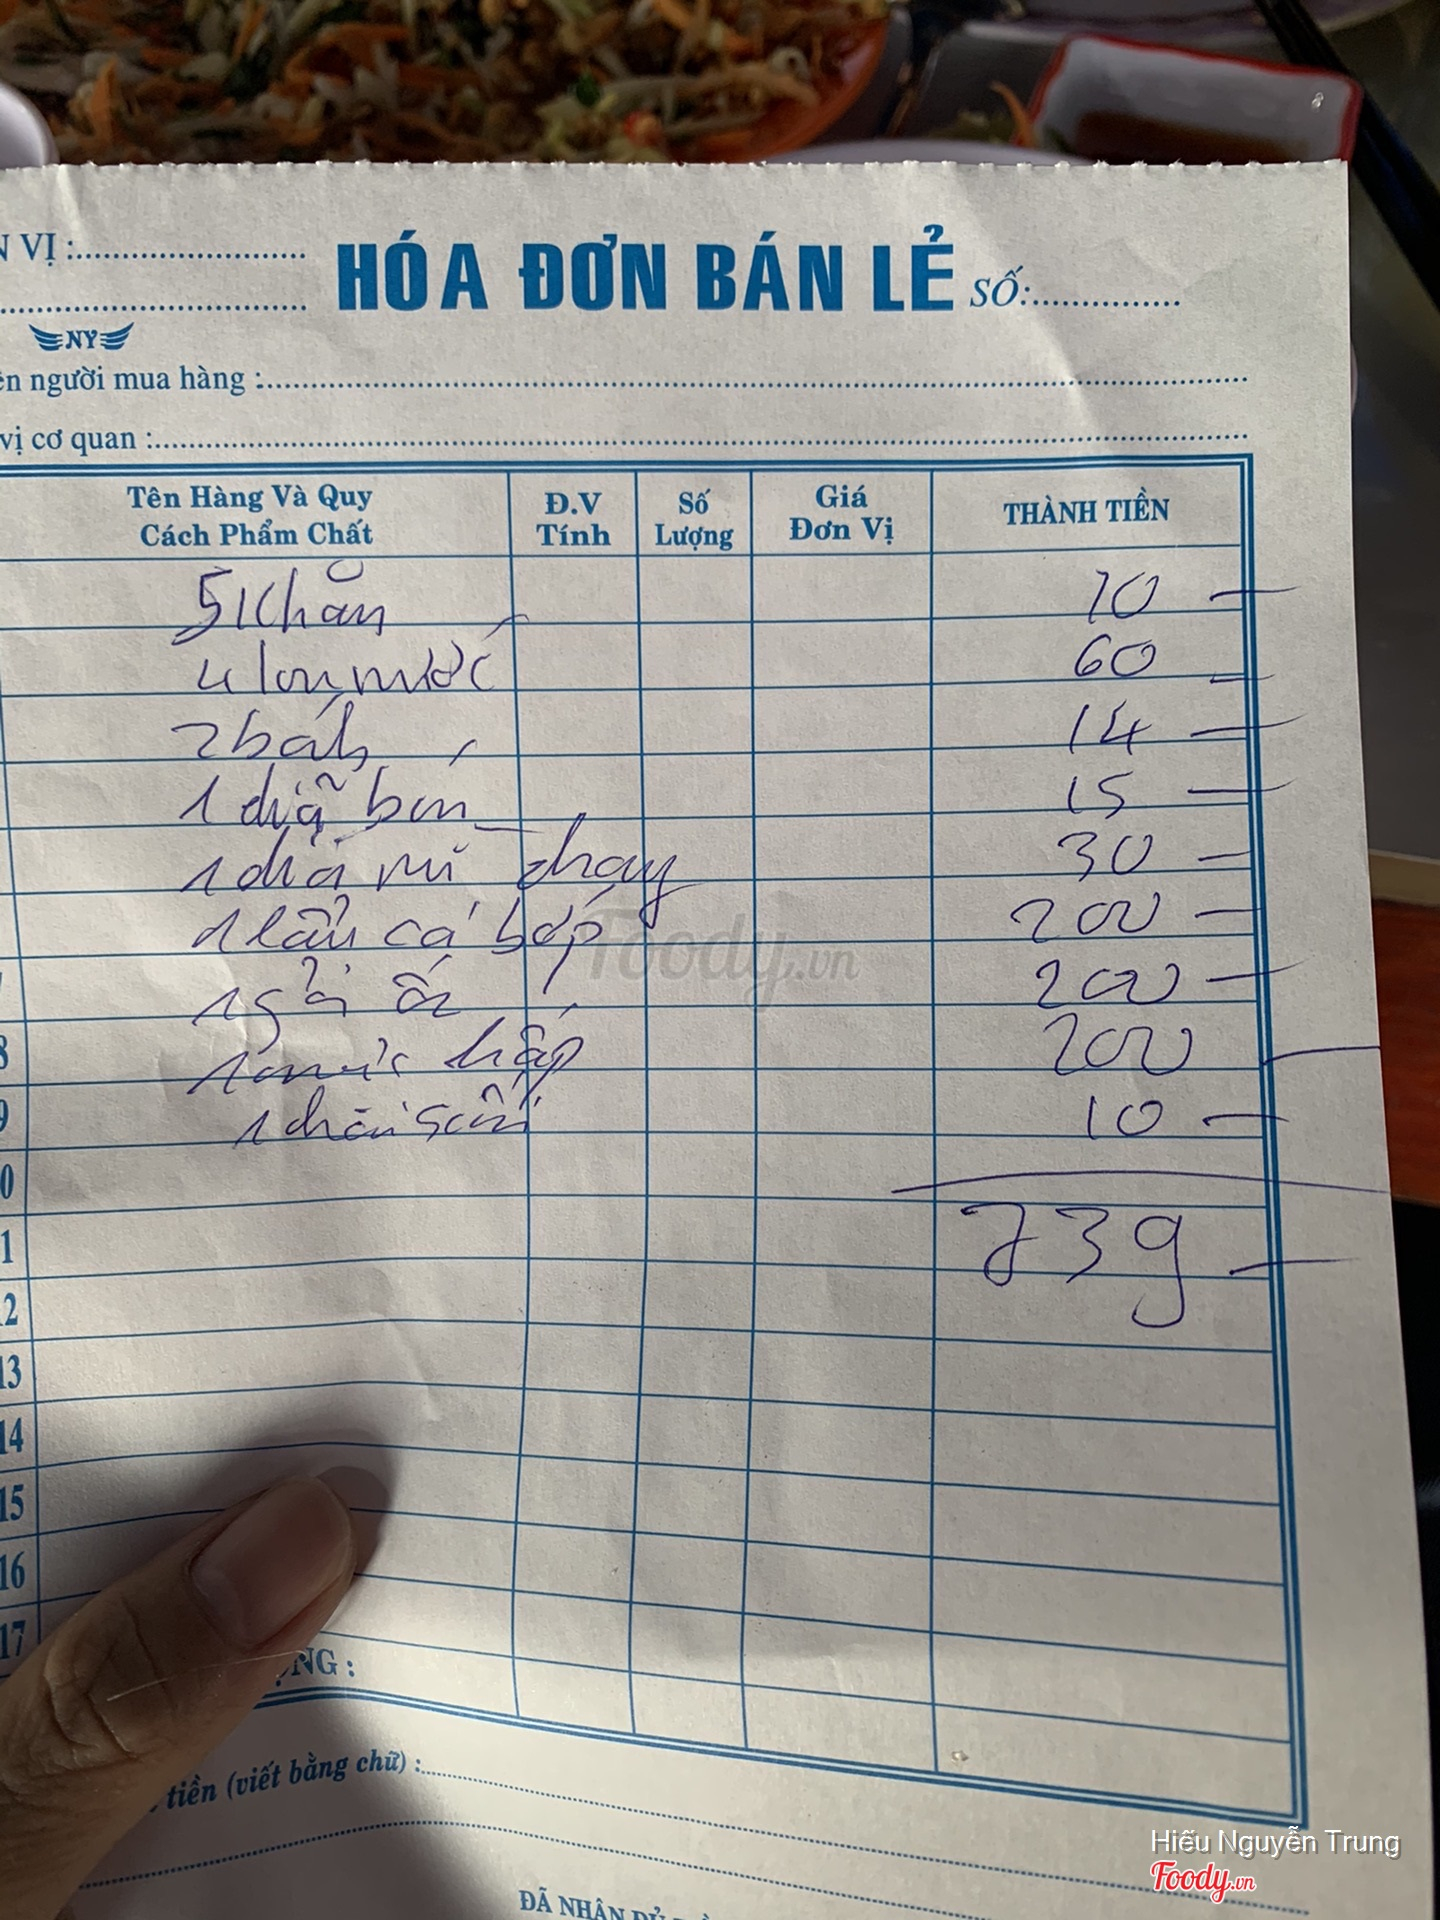 N VỊ :
HÓA ĐƠN BÁN LẺ SỐ:
NY
ên người mua hàng :
vị cơ quan :
Tên Hàng Và Quy Cách Phẩm Chất Đ.V Tính Số Lượng Giá Đơn Vị THÀNH TIỀN
5 Khăn 10
4 lon nước 60
2 bánh 14
1 dĩa bún 15
1 dĩa mì chay 30
1 lẩu cá bớp 200
1 gỏi ốc 200
8 1 mực hấp 200
9 1 chai suối 10
0
1 739
2
13
14
15
16
17
ỘNG :
tiền (viết bằng chữ) :
ĐÃ NHẬN ĐỦ
Foody.vn
Hiếu Nguyễn Trung
Foody.vn